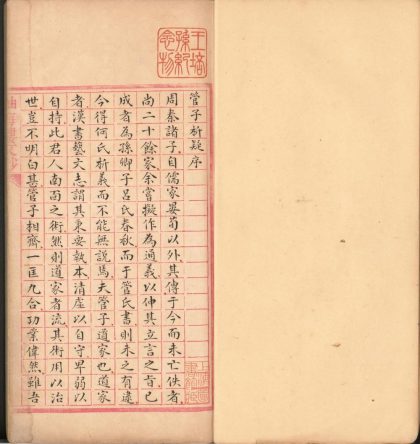 管子析疑序
周秦諸子自儒家晏荀以外其傳于今而未亡佚者
尚二十餘家余嘗擬作為通義以伸其立言之旨已
成者為孫卿子呂氏春秋而于管氏書則未之有違
今得何氏析義而不能無說焉夫管子道家也道家
者漢書藝文志謂其秉要執本清虛以自守卑弱以
自持此君人南面之術然則道家者流其術用以治
世豈不明白甚管子相齊一匡九合功業偉然雖吾